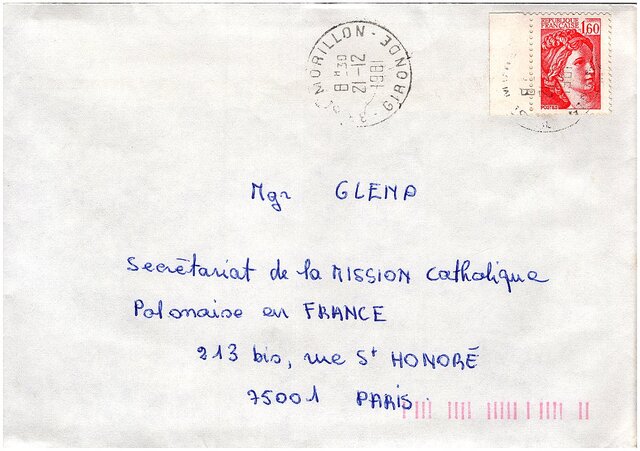 MORILLON - GIRONDE
8 H 30
21-12
1981
REPUBLIQUE
FRANCAISE
1,60
Mgr GLEMP
Secrétariat de la MISSION catholique
Polonaise en FRANCE
213 bis, rue St HONORÉ
75001 PARIS.